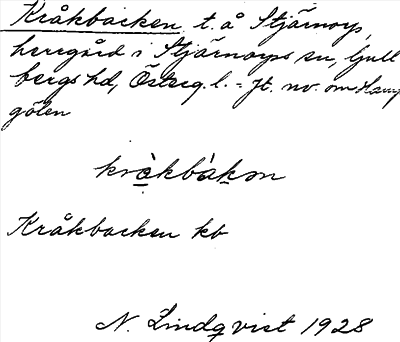 Kråkbacken, t. å Stjärnorp,
herregård i Stjärnorps sn, Gull
bergs hd, Österg. l. = Jt. nv. om
gölen
kråkbakən
Kråkbacken kb
N. Lindqvist 1928